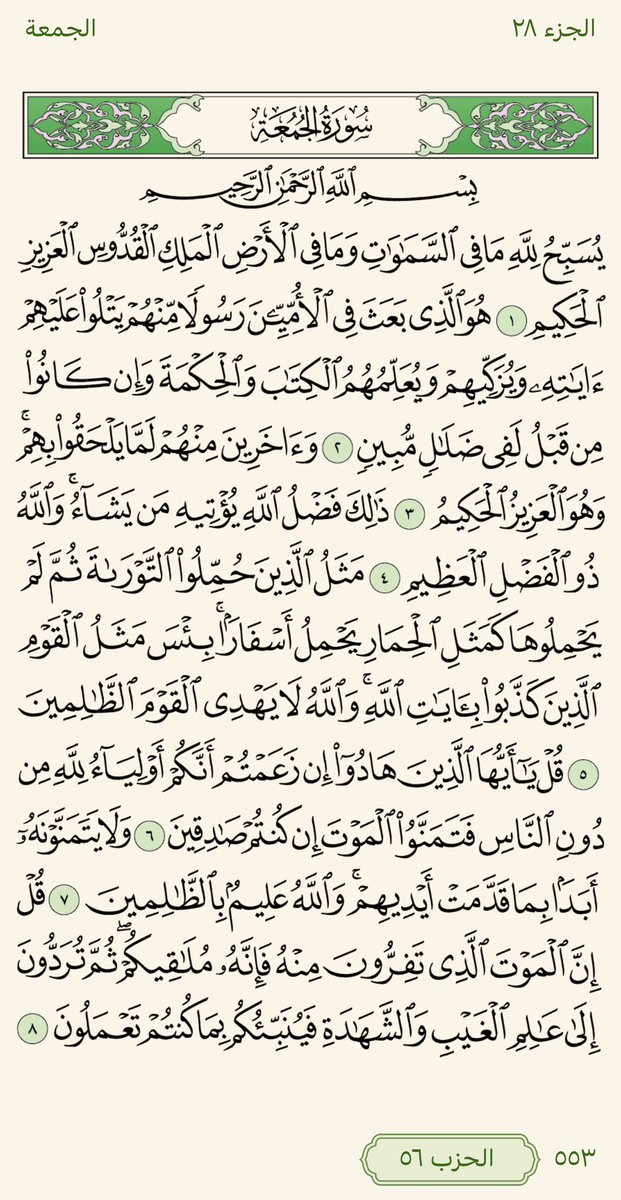 الجزء ٢٨ الجمعة
سُورَةُ الجُمُعَةِ
بِسْمِ ٱللَّهِ ٱلرَّحْمَٰنِ ٱلرَّحِيمِ
يُسَبِّحُ لِلَّهِ مَا فِي ٱلسَّمَٰوَٰتِ وَمَا فِي ٱلْأَرْضِ ٱلْمَلِكِ ٱلْقُدُّوسِ ٱلْعَزِيزِ
ٱلْحَكِيمِ ١ هُوَ ٱلَّذِي بَعَثَ فِي ٱلْأُمِّيِّـۧنَ رَسُولًا مِّنْهُمْ يَتْلُوا۟ عَلَيْهِمْ
ءَايَٰتِهِۦ وَيُزَكِّيهِمْ وَيُعَلِّمُهُمُ ٱلْكِتَٰبَ وَٱلْحِكْمَةَ وَإِن كَانُوا۟
مِن قَبْلُ لَفِي ضَلَٰلٍ مُّبِينٍ ٢ وَءَاخَرِينَ مِنْهُمْ لَمَّا يَلْحَقُوا۟ بِهِمْ ۚ
وَهُوَ ٱلْعَزِيزُ ٱلْحَكِيمُ ٣ ذَٰلِكَ فَضْلُ ٱللَّهِ يُؤْتِيهِ مَن يَشَآءُ ۚ وَٱللَّهُ
ذُو ٱلْفَضْلِ ٱلْعَظِيمِ ٤ مَثَلُ ٱلَّذِينَ حُمِّلُوا۟ ٱلتَّوْرَىٰةَ ثُمَّ لَمْ
يَحْمِلُوهَا كَمَثَلِ ٱلْحِمَارِ يَحْمِلُ أَسْفَارًۢا ۚ بِئْسَ مَثَلُ ٱلْقَوْمِ
ٱلَّذِينَ كَذَّبُوا۟ بِـَٔايَٰتِ ٱللَّهِ ۚ وَٱللَّهُ لَا يَهْدِي ٱلْقَوْمَ ٱلظَّٰلِمِينَ
٥ قُلْ يَٰٓأَيُّهَا ٱلَّذِينَ هَادُوٓا۟ إِن زَعَمْتُمْ أَنَّكُمْ أَوْلِيَآءُ لِلَّهِ مِن
دُونِ ٱلنَّاسِ فَتَمَنَّوُا۟ ٱلْمَوْتَ إِن كُنتُمْ صَٰدِقِينَ ٦ وَلَا يَتَمَنَّوْنَهُۥٓ
أَبَدًۢا بِمَا قَدَّمَتْ أَيْدِيهِمْ ۚ وَٱللَّهُ عَلِيمٌۢ بِٱلظَّٰلِمِينَ ٧ قُلْ
إِنَّ ٱلْمَوْتَ ٱلَّذِي تَفِرُّونَ مِنْهُ فَإِنَّهُۥ مُلَٰقِيكُمْ ۖ ثُمَّ تُرَدُّونَ
إِلَىٰ عَٰلِمِ ٱلْغَيْبِ وَٱلشَّهَٰدَةِ فَيُنَبِّئُكُم بِمَا كُنتُمْ تَعْمَلُونَ ٨
٥٥٣ الحزب ٥٦